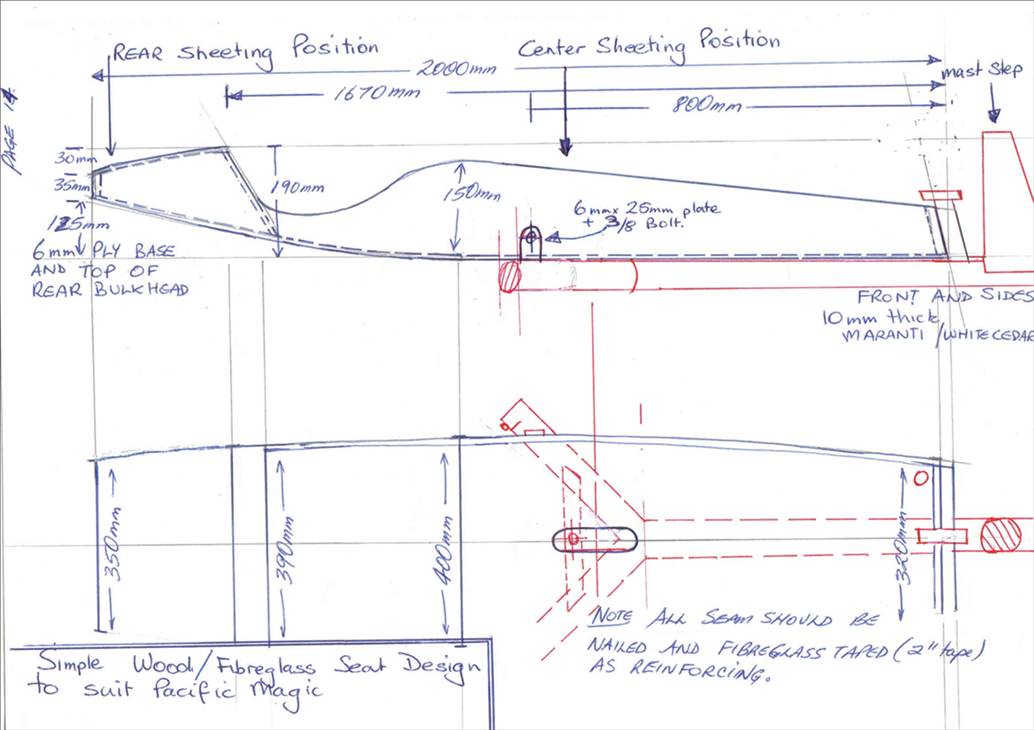 REAR Sheeting Position
Center Sheeting Position
2000mm
mast Step
1670mm
800mm
PAGE 14
30mm
35mm
190mm
150mm
6mm x 25mm plate
+ 3/8 Bolt.
125mm
6mm PLY BASE
AND TOP OF
REAR BULKHEAD
FRONT AND SIDES
10mm thick
MARANTI / WHITECEDAR
350mm
390mm
400mm
320mm
NOTE ALL SEAM SHOULD BE
NAILED AND FIBREGLASS TAPED (2" tape)
AS REINFORCING.
Simple Wood/Fibreglass Seat Design
to suit Pacific Magic